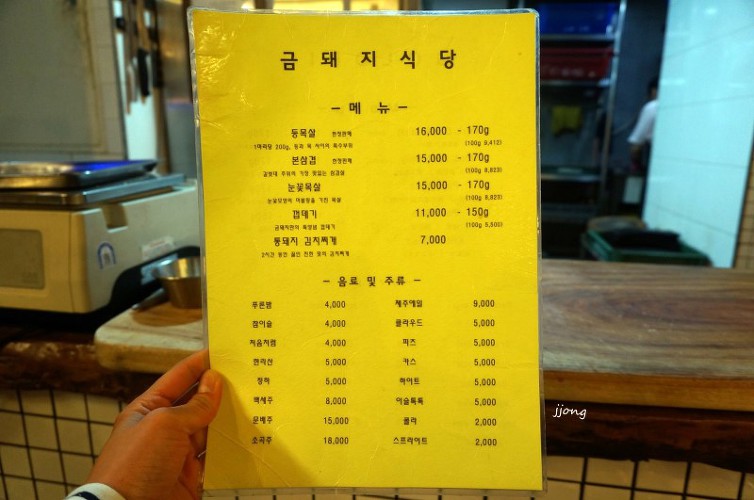 금돼지식당
- 메 뉴 -
등목살 한정판매 16,000 - 170g
1마리당 200g, 등과 목 사이의 특수부위 (100g 9,412)
본삼겹 한정판매 15,000 - 170g
갈빗대 부위의 가장 맛있는 삼겹살 (100g 8,823)
눈꽃목살 15,000 - 170g
눈꽃모양의 마블링을 가진 목살 (100g 8,823)
껍데기 11,000 - 150g
금돼지만의 껍데기 (100g 5,500)
통돼지 김치찌개 7,000
2시간 동안 끓인 진한 맛의 김치찌개
- 음료 및 주류 -
푸른밤 4,000 제주에일 9,000
참이슬 4,000 클라우드 5,000
처음처럼 4,000 피츠 5,000
한라산 5,000 카스 5,000
청하 5,000 하이트 5,000
백세주 8,000 이슬톡톡 5,000
문배주 15,000 콜라 2,000
소곡주 18,000 스프라이트 2,000
jjong